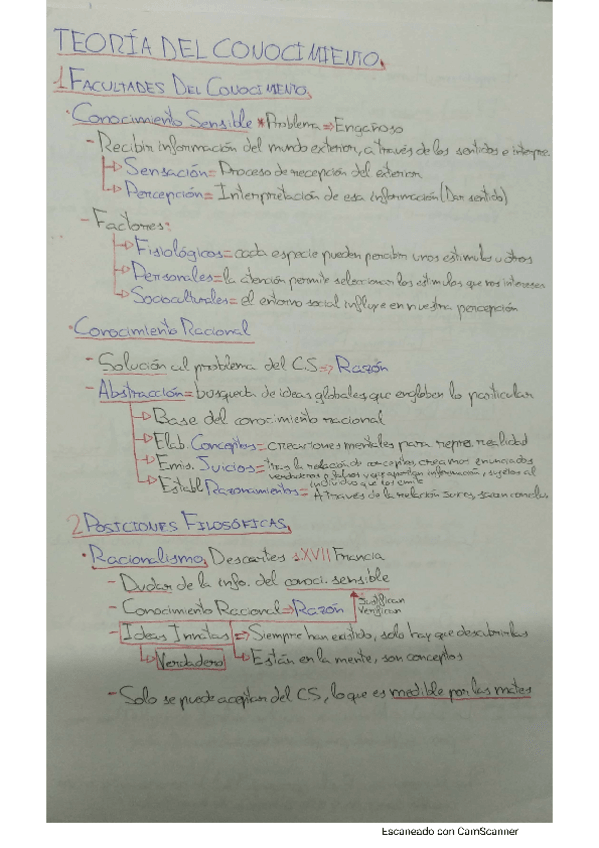 TEORÍA DEL CONOCIMIENTO.
1 FACULTADES DEL CONOCIMIENTO.
· Conocimiento Sensible * Problema => Engañoso
- Recibir información del mundo exterior, a través de los sentidos e interpre.
Sensación = Proceso de recepción del exterior
Percepción = Interpretación de esa información (Dar sentido)
- Factores:
Fisiológicos = cada especie pueden percibir unos estímulos u otros
Personales = la atención permite seleccionar los estímulos que nos interesen
Socioculturales = el entorno social influye en nuestra percepción
· Conocimiento Racional
- Solución al problema del CS => Razón
- Abstracción = busqueda de ideas globales, que engloben lo particular
Base del conocimiento racional
Elab. Conceptos = creaciones mentales para repre. realidad
Emis. Juicios = tras la relación de conceptos, creamos enunciados
verdaderos o falsos y que aportan información, sujetos al
individuo que los emite
Establ Razonamientos = A través de la relación
2 POSICIONES FILOSÓFICAS.
· Racionalismo, Descartes s.XVII Francia
- Dudar de la info. del conoci. sensible
- Conocimiento Racional => Razón Justifican
Verifican
- Ideas Innatas => Siempre han existido, solo hay que descubrirlas
Verdadero Están en la mente, son conceptos
- Solo se puede aceptar del CS, lo que es medible por las mates
Escaneado con CamScanner